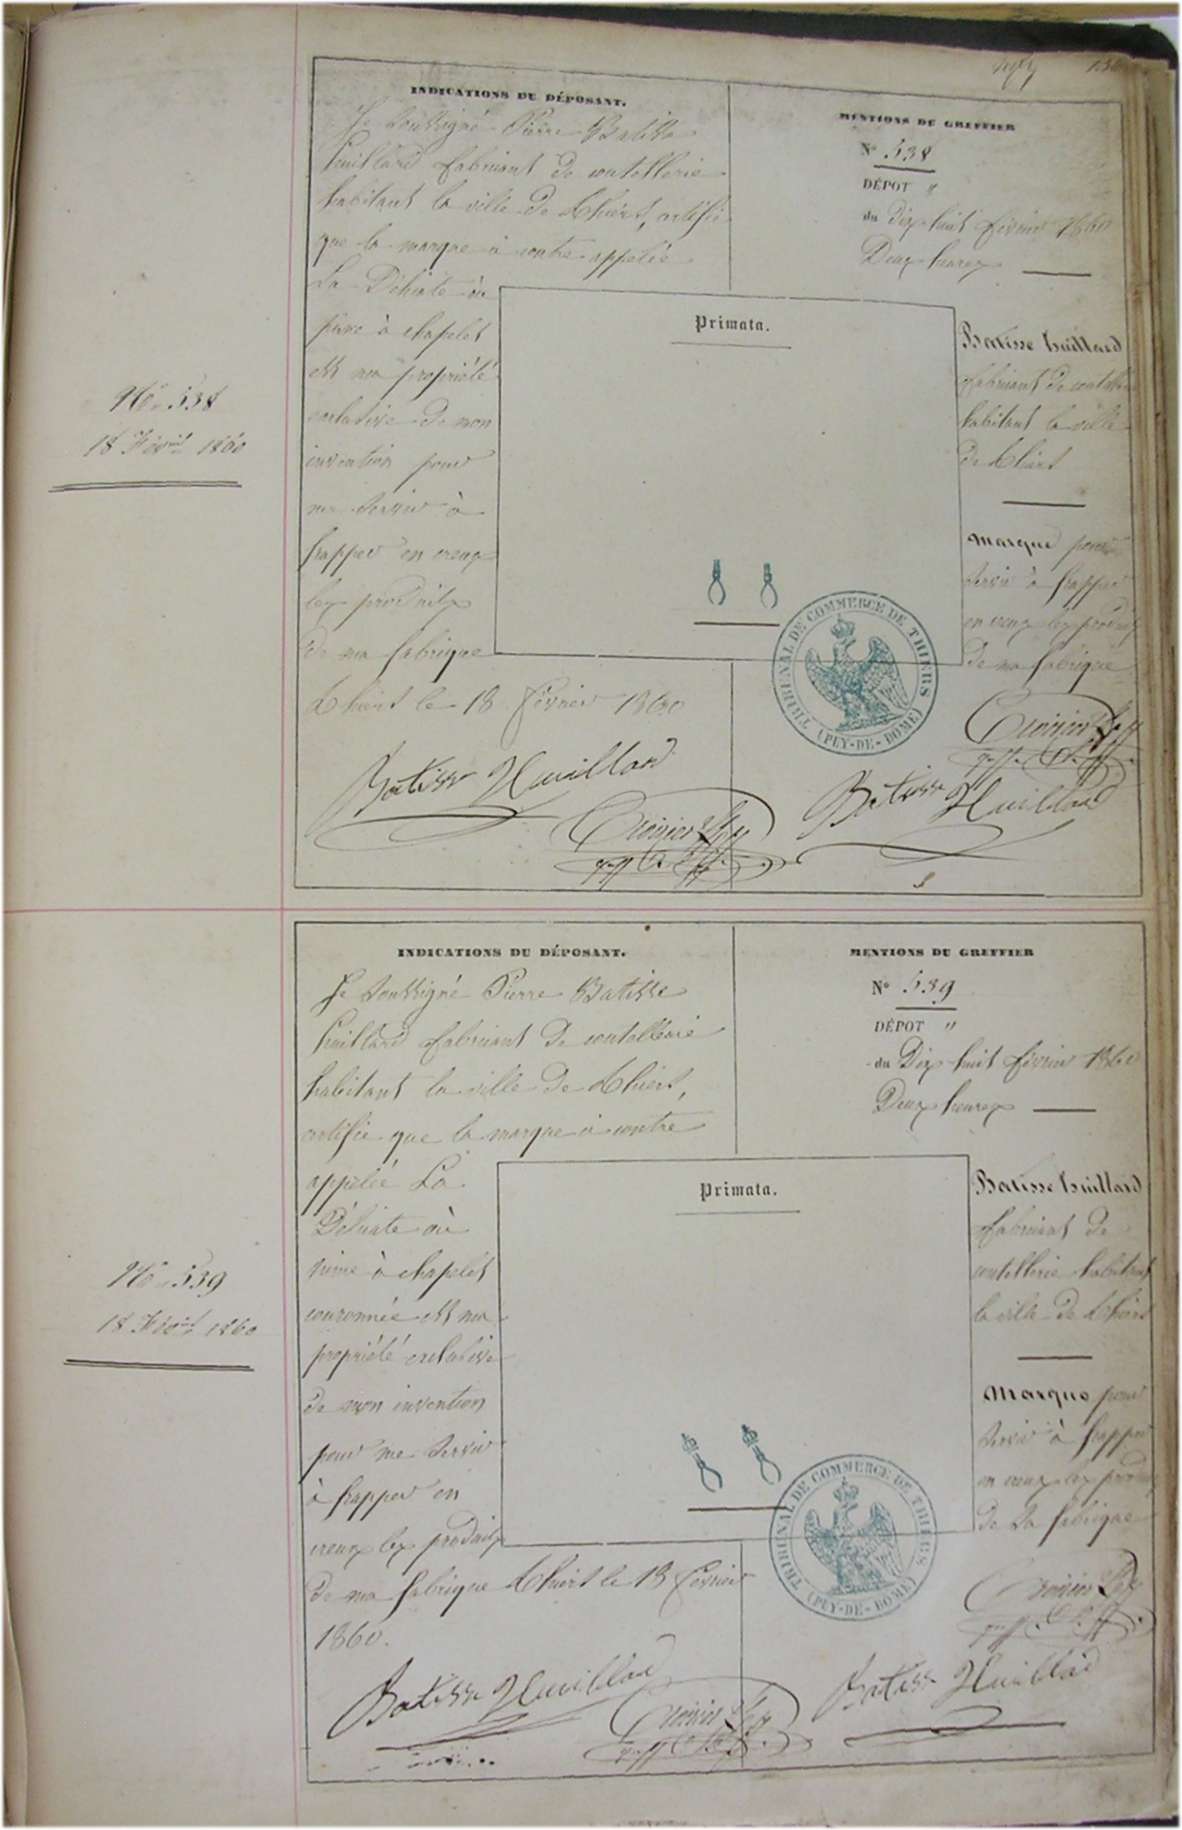 INDICATIONS DU DÉPOSANT.
Je soussigné Pierre Batisse
huillard fabricant de coutellerie
habitant la ville de Thiers, certifie
que la marque ci contre appelée
La Délicate où
pince à chapelet
est ma propriété
exclusive de mon
invention pour
me servir à
frapper en creux
les produits
de ma fabrique
Thiers le 18 février 1860
Batisse Huillard
MENTIONS DU GREFFIER
N° 538
DÉPOT "
du dix huit février 1860
Deux heures
Primata.
Batisse huillard
fabricant de coutellerie
habitant la ville
de Thiers
Marque pour
servir à frapper
en creux les produits
de ma fabrique
Batisse Huillard
TRIBUNAL DE COMMERCE DE THIERS
(PUY-DE-DOME)
No 538
18 Févrierr 1860
INDICATIONS DU DÉPOSANT.
Je soussigné Pierre Batisse
huillard fabricant de coutellerie
habitant la ville de Thiers,
certifie que la marque ci contre
appelée La
Délicate où
pince à chapelet
couronnée est ma
propriété exclusive
de mon invention
pour me servir
à frapper en
creux les produits
de ma fabrique Thiers le 18 février
1860.
Batisse Huillard
MENTIONS DU GREFFIER
N° 539
DÉPOT "
du Dix huit février 1860
Deux heures
Primata.
Batisse huillard
fabricant de
coutellerie habitant
la ville de Thiers
Marque pour
servir à frapper
en creux les produits
de sa fabrique
Batisse Huillard
TRIBUNAL DE COMMERCE DE THIERS
(PUY-DE-DOME)
No 539
18 Févr 1860